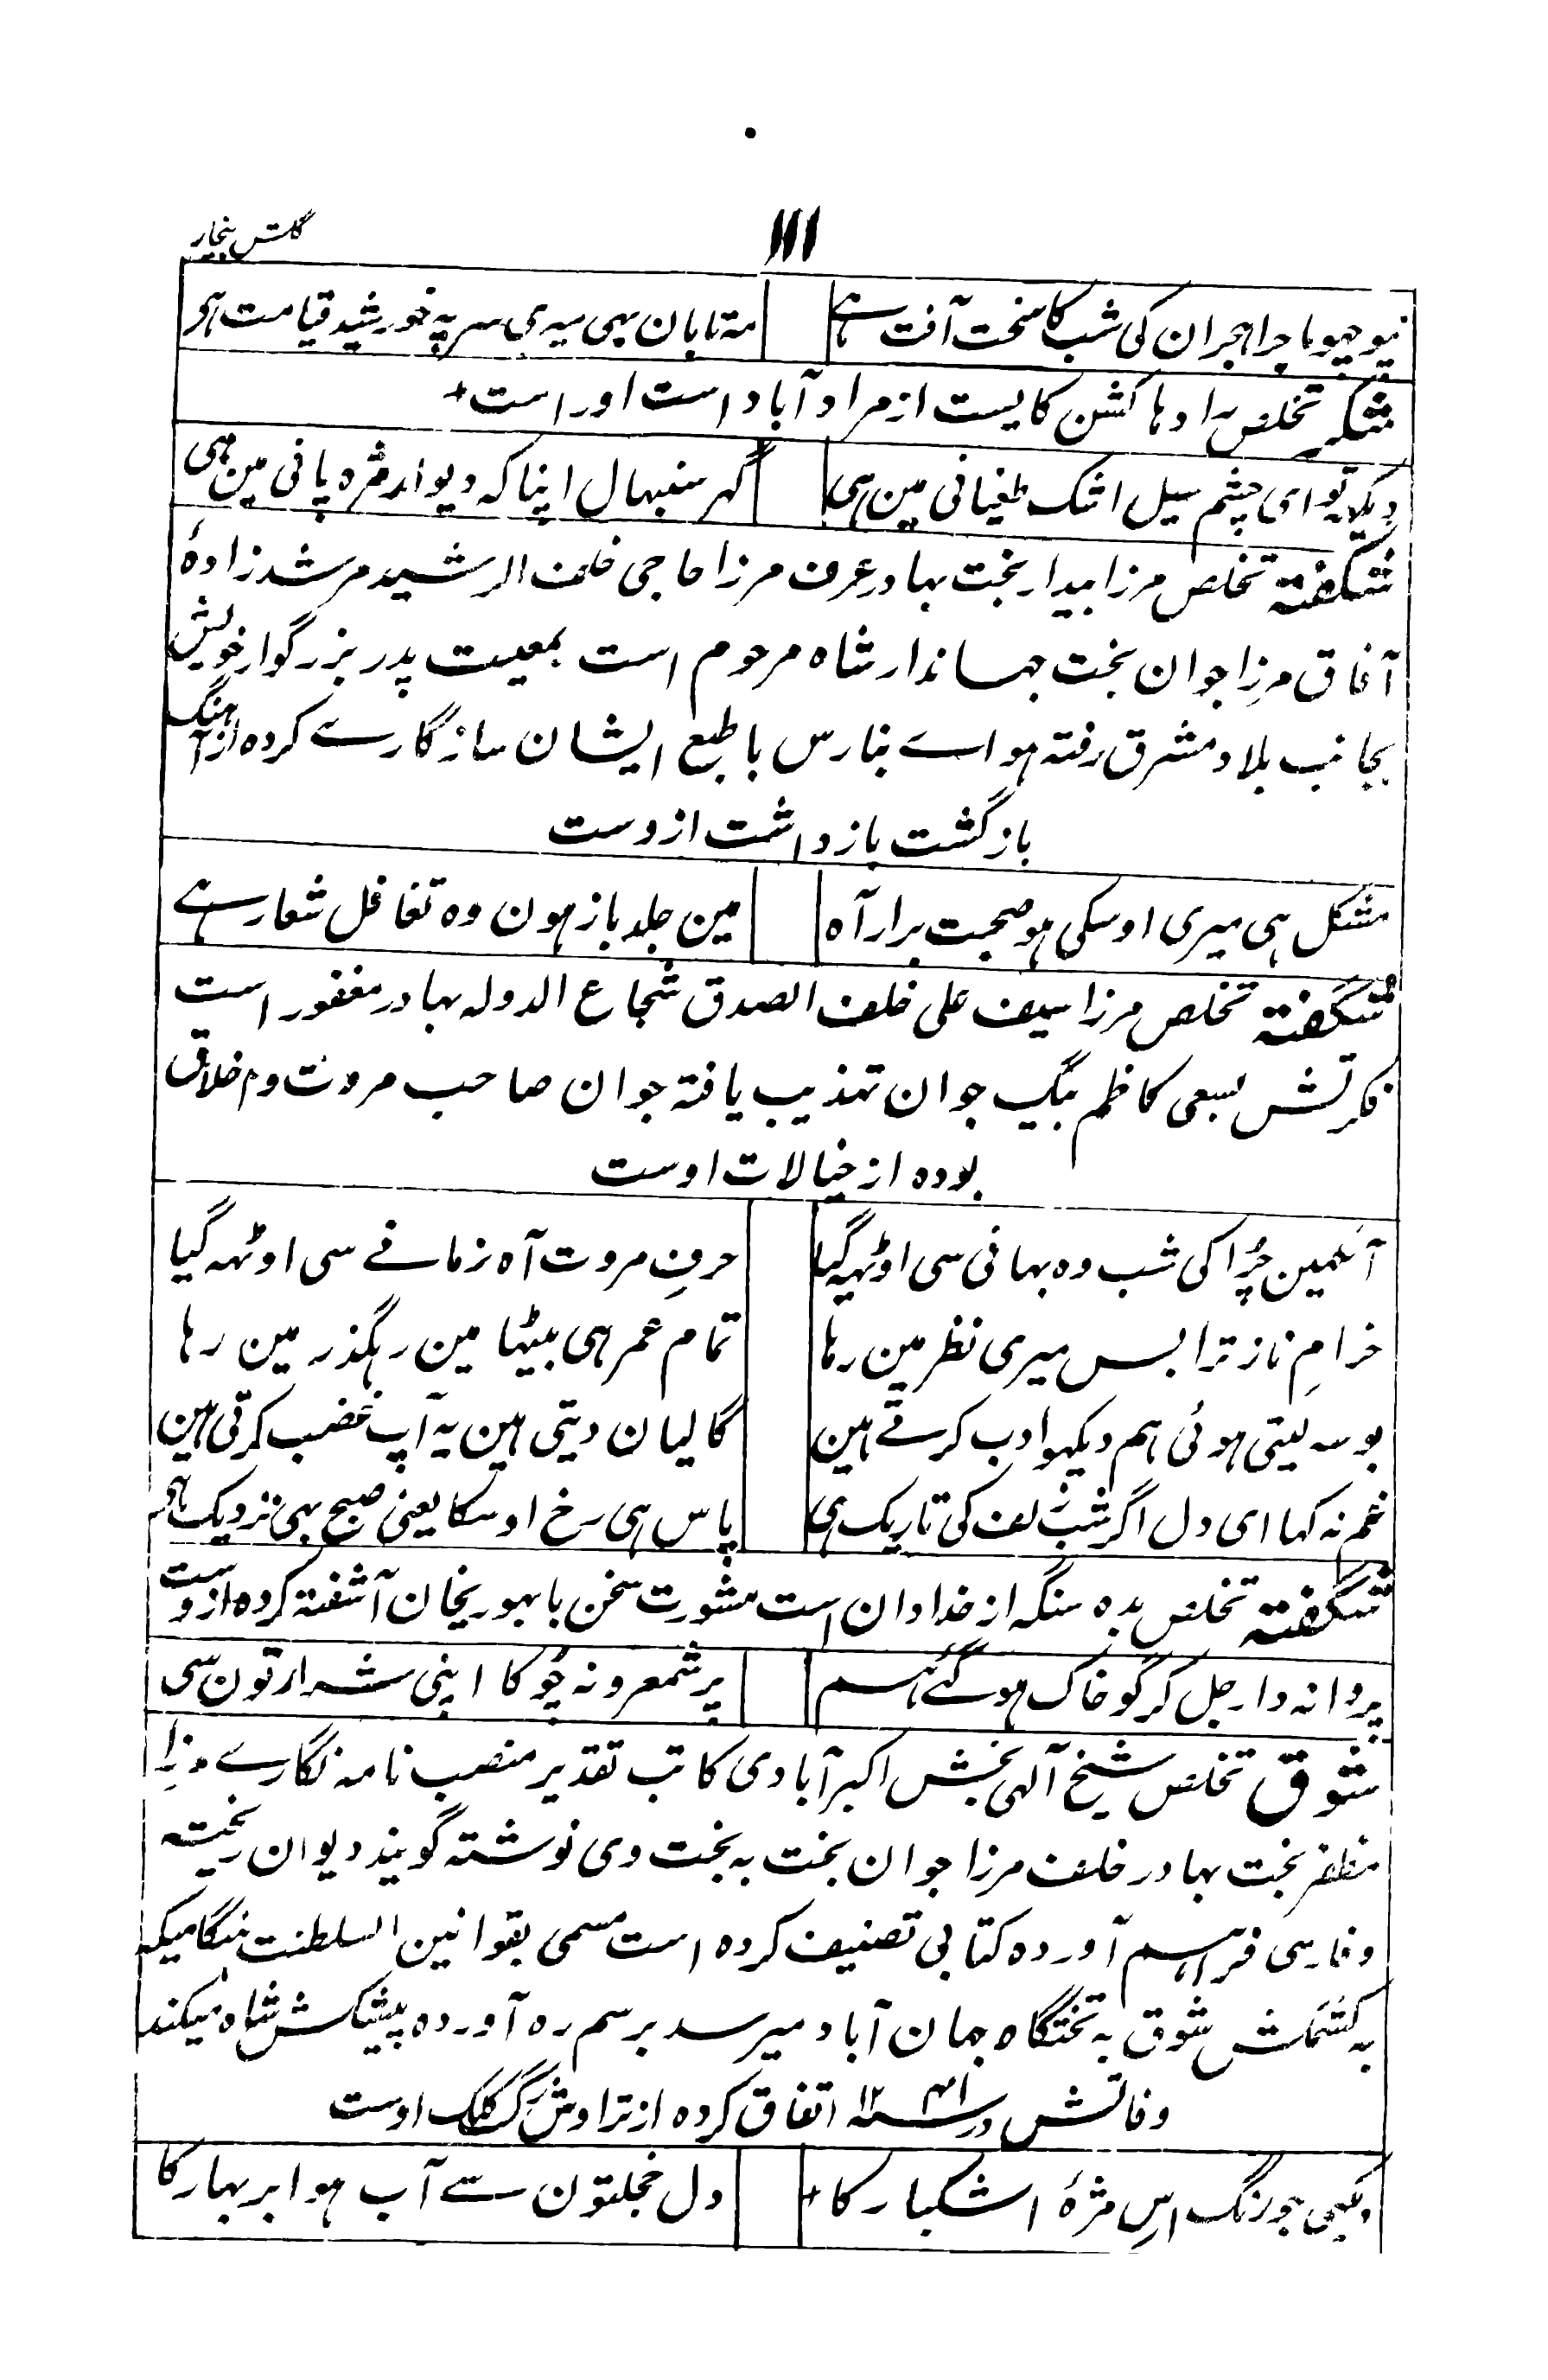 ۱۱۱
گلشن بیخار
نپوچھو ماجرا ہجران کی شب کا سخت آفت ہے مہ تابان بہی میری سر پہ خورشید قیامت ہی
تخلص رادہا کشن کایست از مراد آباد است اوراست
دیکہ تو ای چشم سیل اشک طغیانی مین ہی گہر سنبہال اپنا کہ دیوار مژہ پانی مین ہی
شگفتہ تخلص مرزا بیدار بخت بہادر عرف مرزا حاجی خلف الرشید مرشد زادۂ
آفاق مرزا جوان بخت جہاندار شاہ مرحوم است بمعیت پدر بزرگوار خویش
بجانب بلاد مشرق رفتہ ہواے بنارس با طبع ایشان سازگارے کردہ از آہنگ
بازگشت بازداشت ازوست
مشکل ہی میری اوسکی ہو صحبت برار آہ مین جلد باز ہون وہ تغافل شعار ہے
شگفتہ تخلص مرزا سیف علی خلف الصدق شجاع الدولہ بہادر مغفور است
فکرتش بسعی کاظم بیگ جوان تہذیب یافتہ جوان صاحب مروت و اخلاق
بودہ از خیالات اوست
آنکہین چُرا کی شب وہ بہانی سی اوٹہہ گیا حرفِ مروت آہ زمانے سی اوٹہہ گیا
خرامِ ناز ترا بس میری نظر مین رہا تمام عمر ہی بیٹہا مین رہگذر مین رہا
بوسہ لیتی ہوئی ہم دیکہو ادب کرتے ہین گالیان دیتی ہین یہ آپ غضب کرتی ہین
غم نہ کہا ای دل اگر شب زلف کی تاریک ہی پاس ہی رخ اوسکا یعنی صبح بہی نزدیک ہی
شگفتہ تخلص بدہ سنگہ از خدادان است مشورت سخن با بہوریخان آشفتہ کردہ ازوست
پروانہ وار جل کر گو خاک ہو گئے ہم پر شمعرو نہ چُوکا اپنی شرارتون سی
شوق تخلص شیخ آلہی بخش اکبرآبادی کاتب تقدیر منصب نامہ نگارے مرزا
مظفر بخت بہادر خلف مرزا جوان بخت بہ بخت وی نوشتہ گویند دیوان ریختہ
و فارسی فراہم آوردہ کتابی تصنیف کردہ است مسمی بقوانین السلطنت ہنگامیکہ
بہ کشمکش شوق بہ تختگاہ جہان آباد میرسد برسم رہ آوردہ پیشکش شاہ میکند
وفاتش در سنہ ۱۲۴۱ اتفاق کردہ از تراوش رگ کلک اوست
دیکہی جو رنگ اسِ مژۂ اشکبار کا دل خجلتون سے آب ہوا بر بہار کا